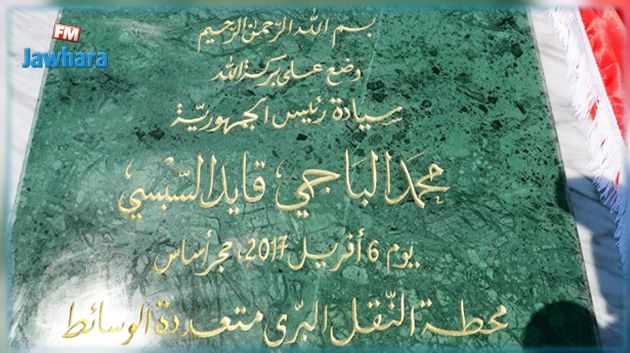 FM
Jawhara
بسم الله الرحمن الرحيم
وضع على بركة الله
سيادة رئيس الجمهورية
محمد الباجي قايد السبسي
يوم 6 أفريل 2017، حجر أساس
محطة النقل البري متعددة الوسائط